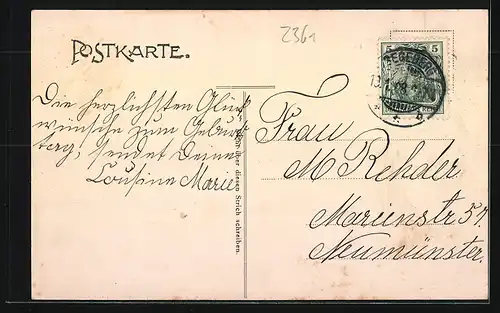 2361
POSTKARTE.
5 5
SEGEBERG
Die herzlichsten Glück
wünsche zum Geburts
tag, sendet Deine
Cousine Marie
über diesen Strich schreiben.
Frau
M Rehder
Marienstr 57.
Neumünster.